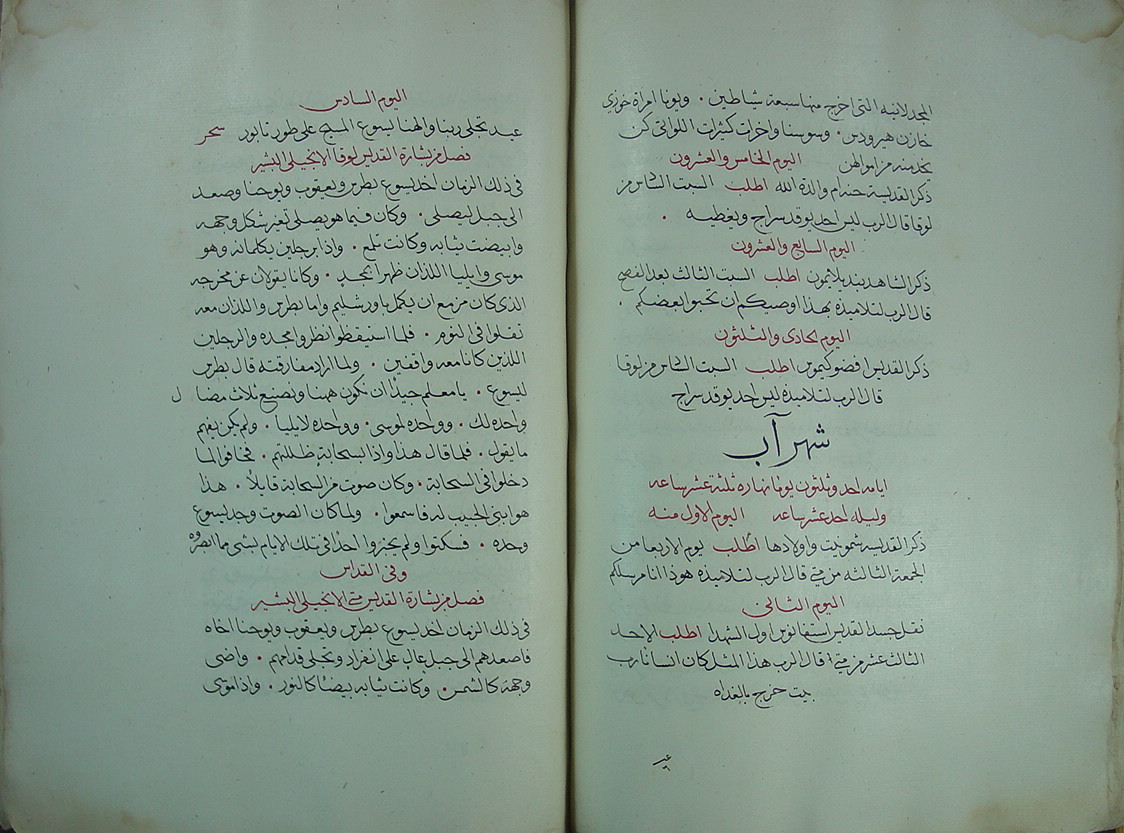 المجدلانيه التى اخرج منها سبعة شياطين . ويونا امراة خوزي
خازن هيرودس . وسوسنا واخرات كثيرات اللواتى كن
يخدمنه من اموالهن اليوم الخامس والعشرون
ذكر القديسة حنه ام والدة الله اطلب السبت السادس من
لوقا قال الرب ليس احد يوقد سراج ويغطيه .
اليوم السابع والعشرون
ذكر الشاهد بنديلايمون اطلب السبت الثالث بعد الفصح
قال الرب لتلاميذه بهذا اوصيكم ان تحبوا بعضكم .
اليوم الحادى والثلثون
ذكر القديس افضوكيموس اطلب السبت السادس من لوقا
قال الرب لتلاميذه ليس احد يوقد سراج
شهر آب
ايامه احد وثلثون يوما نهاره ثلثة عشر ساعه
وليله احد عشر ساعه اليوم الاول منه
ذكر القديسه شمونيت واولادها اطلب يوم الاربعا من
الجمعة الثالثه من متى قال الرب لتلاميذه هوذا انا مرسلكم
اليوم الثانى
نقل جسد القديس استفانوس اول الشهدا اطلب الاحد
الثالث عشر من متى قال الرب هذا المثل كان انسانا رب
بيت خرج بالغداه
اليوم السادس
عيد تجلى ربنا والهنا يسوع المسيح على طور تابور سحر
فصل من بشارة القديس لوقا الانجيلى البشير
فى ذلك الزمان اخد يسوع بطرس ويعقوب ويوحنا وصعد
الى جبل ليصلى . وكان فيما هو يصلى تغير شكل وجهه
وابيضت ثيابه وكانت تلمع . واذا برجلين يكلمانه وهو
موسى وايليا اللذان ظهرا بمجد . وكانا يقولان عن مخرجه
الذى كان مزمع ان يكمل باورشليم واما بطرس واللذان معه
ثقلوا فى النوم . فلما استيقظوا نظروا مجده والرجلين
اللذين كانا معه واقفين . ولما اراد مفارقته قال بطرس
ليسوع . يا معلم جيدا ان نكون ههنا ونصنع ثلاث مضا ل
واحده لك . وواحده لموسى . وواحده لايليا . ولم يكن يفهم
ما يقول . فلما قال هذا واذا السحابة ظللتهم . فخافوا لما
دخلوا فى السحابة . وكان صوت من السحابة قايلا . هذا
هو ابنى الحبيب له فاسمعوا . ولما كان الصوت وجد يسوع
وحده . فسكتوا ولم يخبروا احدا فى تلك الايام بشى مما ابصروه
وفى القداس
فصل من بشارة القديس متى الانجيلى البشير
فى ذلك الزمان اخد يسوع بطرس ويعقوب ويوحنا اخاه
فاصعدهم الى جبل عال على انفراد وتجلى قدامهم . واضى
وجهه كالشمس . وكانت ثيابه بيضا كالنور . واذا موسى